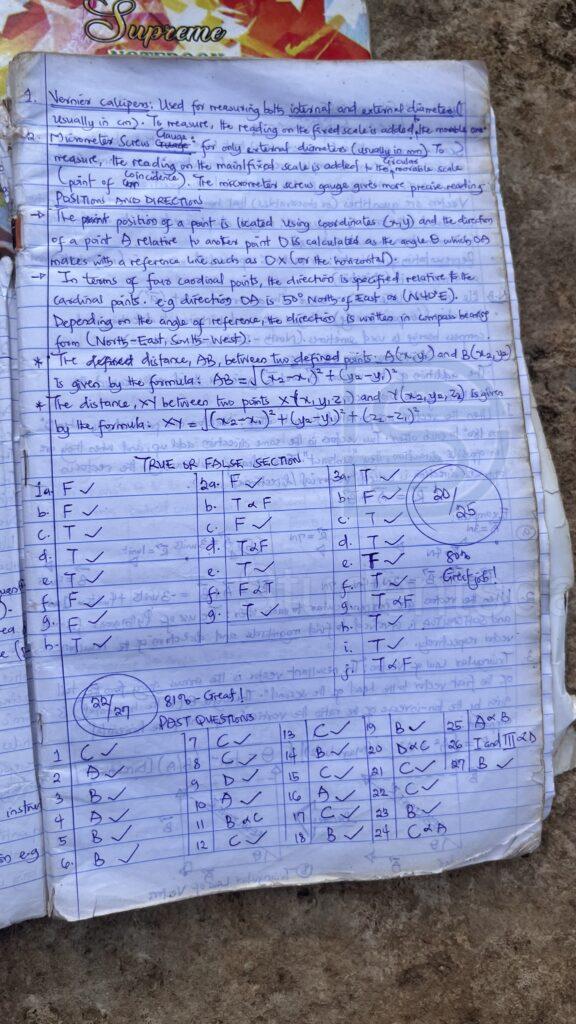 Supreme
NOTEBOOK
1. Vernier callipers: Used for measuring both internal and external diameters (
usually in cm). To measure, the reading on the fixed scale is added to the movable one
2. Micrometer Screw Gauge: for only external diameters (usually in mm) To
measure, the reading on the main/fixed scale is added to the circular movable scale
(point of coincidence). The micrometer screw gauge gives more precise reading
POSITIONS AND DIRECTIONS
→ The position of a point is located using coordinates (x,y) and the direction
of a point A relative to another point O is calculated as the angle θ which OA
makes with a reference line such as OX (or the horizontal).
→ In terms of four cardinal points, the direction is specified relative to the
cardinal points. e.g direction OA is 50° North of East or (N40°E).
Depending on the angle of reference, the direction is written in compass bearing
form (North-East, South-West).
* The distance, AB, between two defined points: A(x₁y₁) and B(x₂,y₂)
is given by the formula: AB = √(x₂-x₁)² + (y₂-y₁)²
* The distance, XY between two points X(x₁,y₁,z₁) and Y(x₂,y₂,z₂) is given
by the formula: XY = √(x₂-x₁)² + (y₂-y₁)² + (z₂-z₁)²
TRUE OR FALSE SECTION
1a. F ✓
b. F ✓
c. T ✓
d. T ✓
e. T ✓
f. F ✓
g. F ✓
h. T ✓
2a. F ✓
b. T ∝ F
c. F ✓
d. T ∝ F
e. T ✓
f. F ∝ T
g. T ✓
3a. T ✓
b. F ✓
c. T ✓
d. T ✓
e. F ✓
f. T ✓
g. T ∝ F
h. T ✓
i. T ✓
j. T ∝ F
20/25
80%
Great job!
22/27
81% - Great!
PAST QUESTIONS
1 C ✓
2 A ✓
3 B ✓
4 A ✓
5 B ✓
6. B ✓
7 C ✓
8 C ✓
9 D ✓
10 A ✓
11 B ∝ C
12 C ✓
13 C ✓
14 B ✓
15 C ✓
16 A ✓
17 C ✓
18 B ✓
19 B ✓
20 D ∝ C
21 C ✓
22 C ✓
23 B ✓
24 C ∝ A
25 A ∝ B
26 I and III ∝ D
27 B ✓